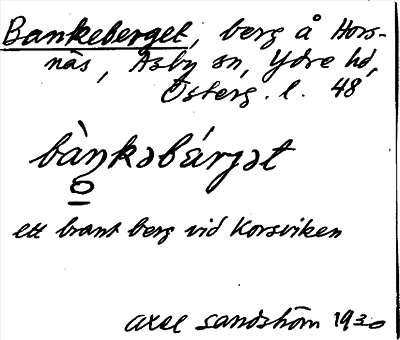 Bankeberget, berg å Hors-
näs, Asby sn, Ydre hd,
Österg. l. 48
bàŋkəbárjət
o
ett brant berg vid Korsviken
Axel Sandström 1930